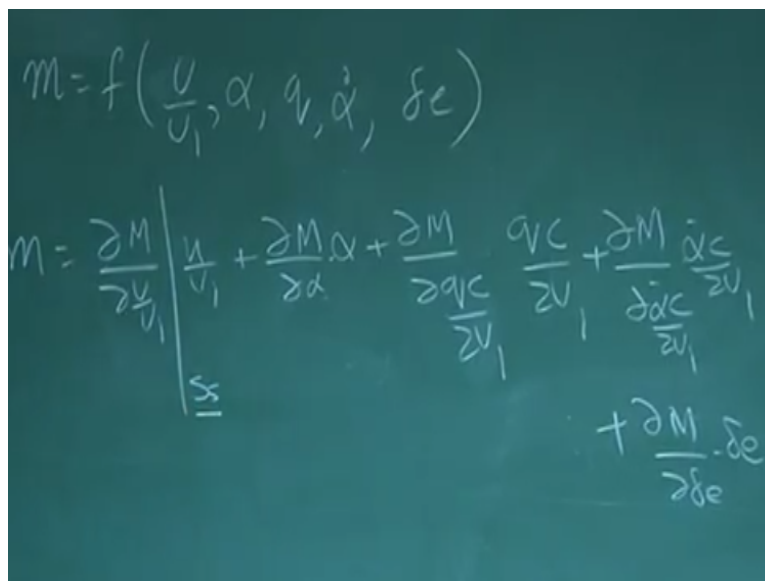 m = f(U/U₁, α, q, α̇, δe)
m = ∂M/∂(U/U₁) |ss u/U₁ + ∂M/∂α · α + ∂M/∂(qc/2U₁) qc/2U₁ + ∂M/∂(α̇c/2U₁) α̇c/2U₁
+ ∂M/∂δe · δe